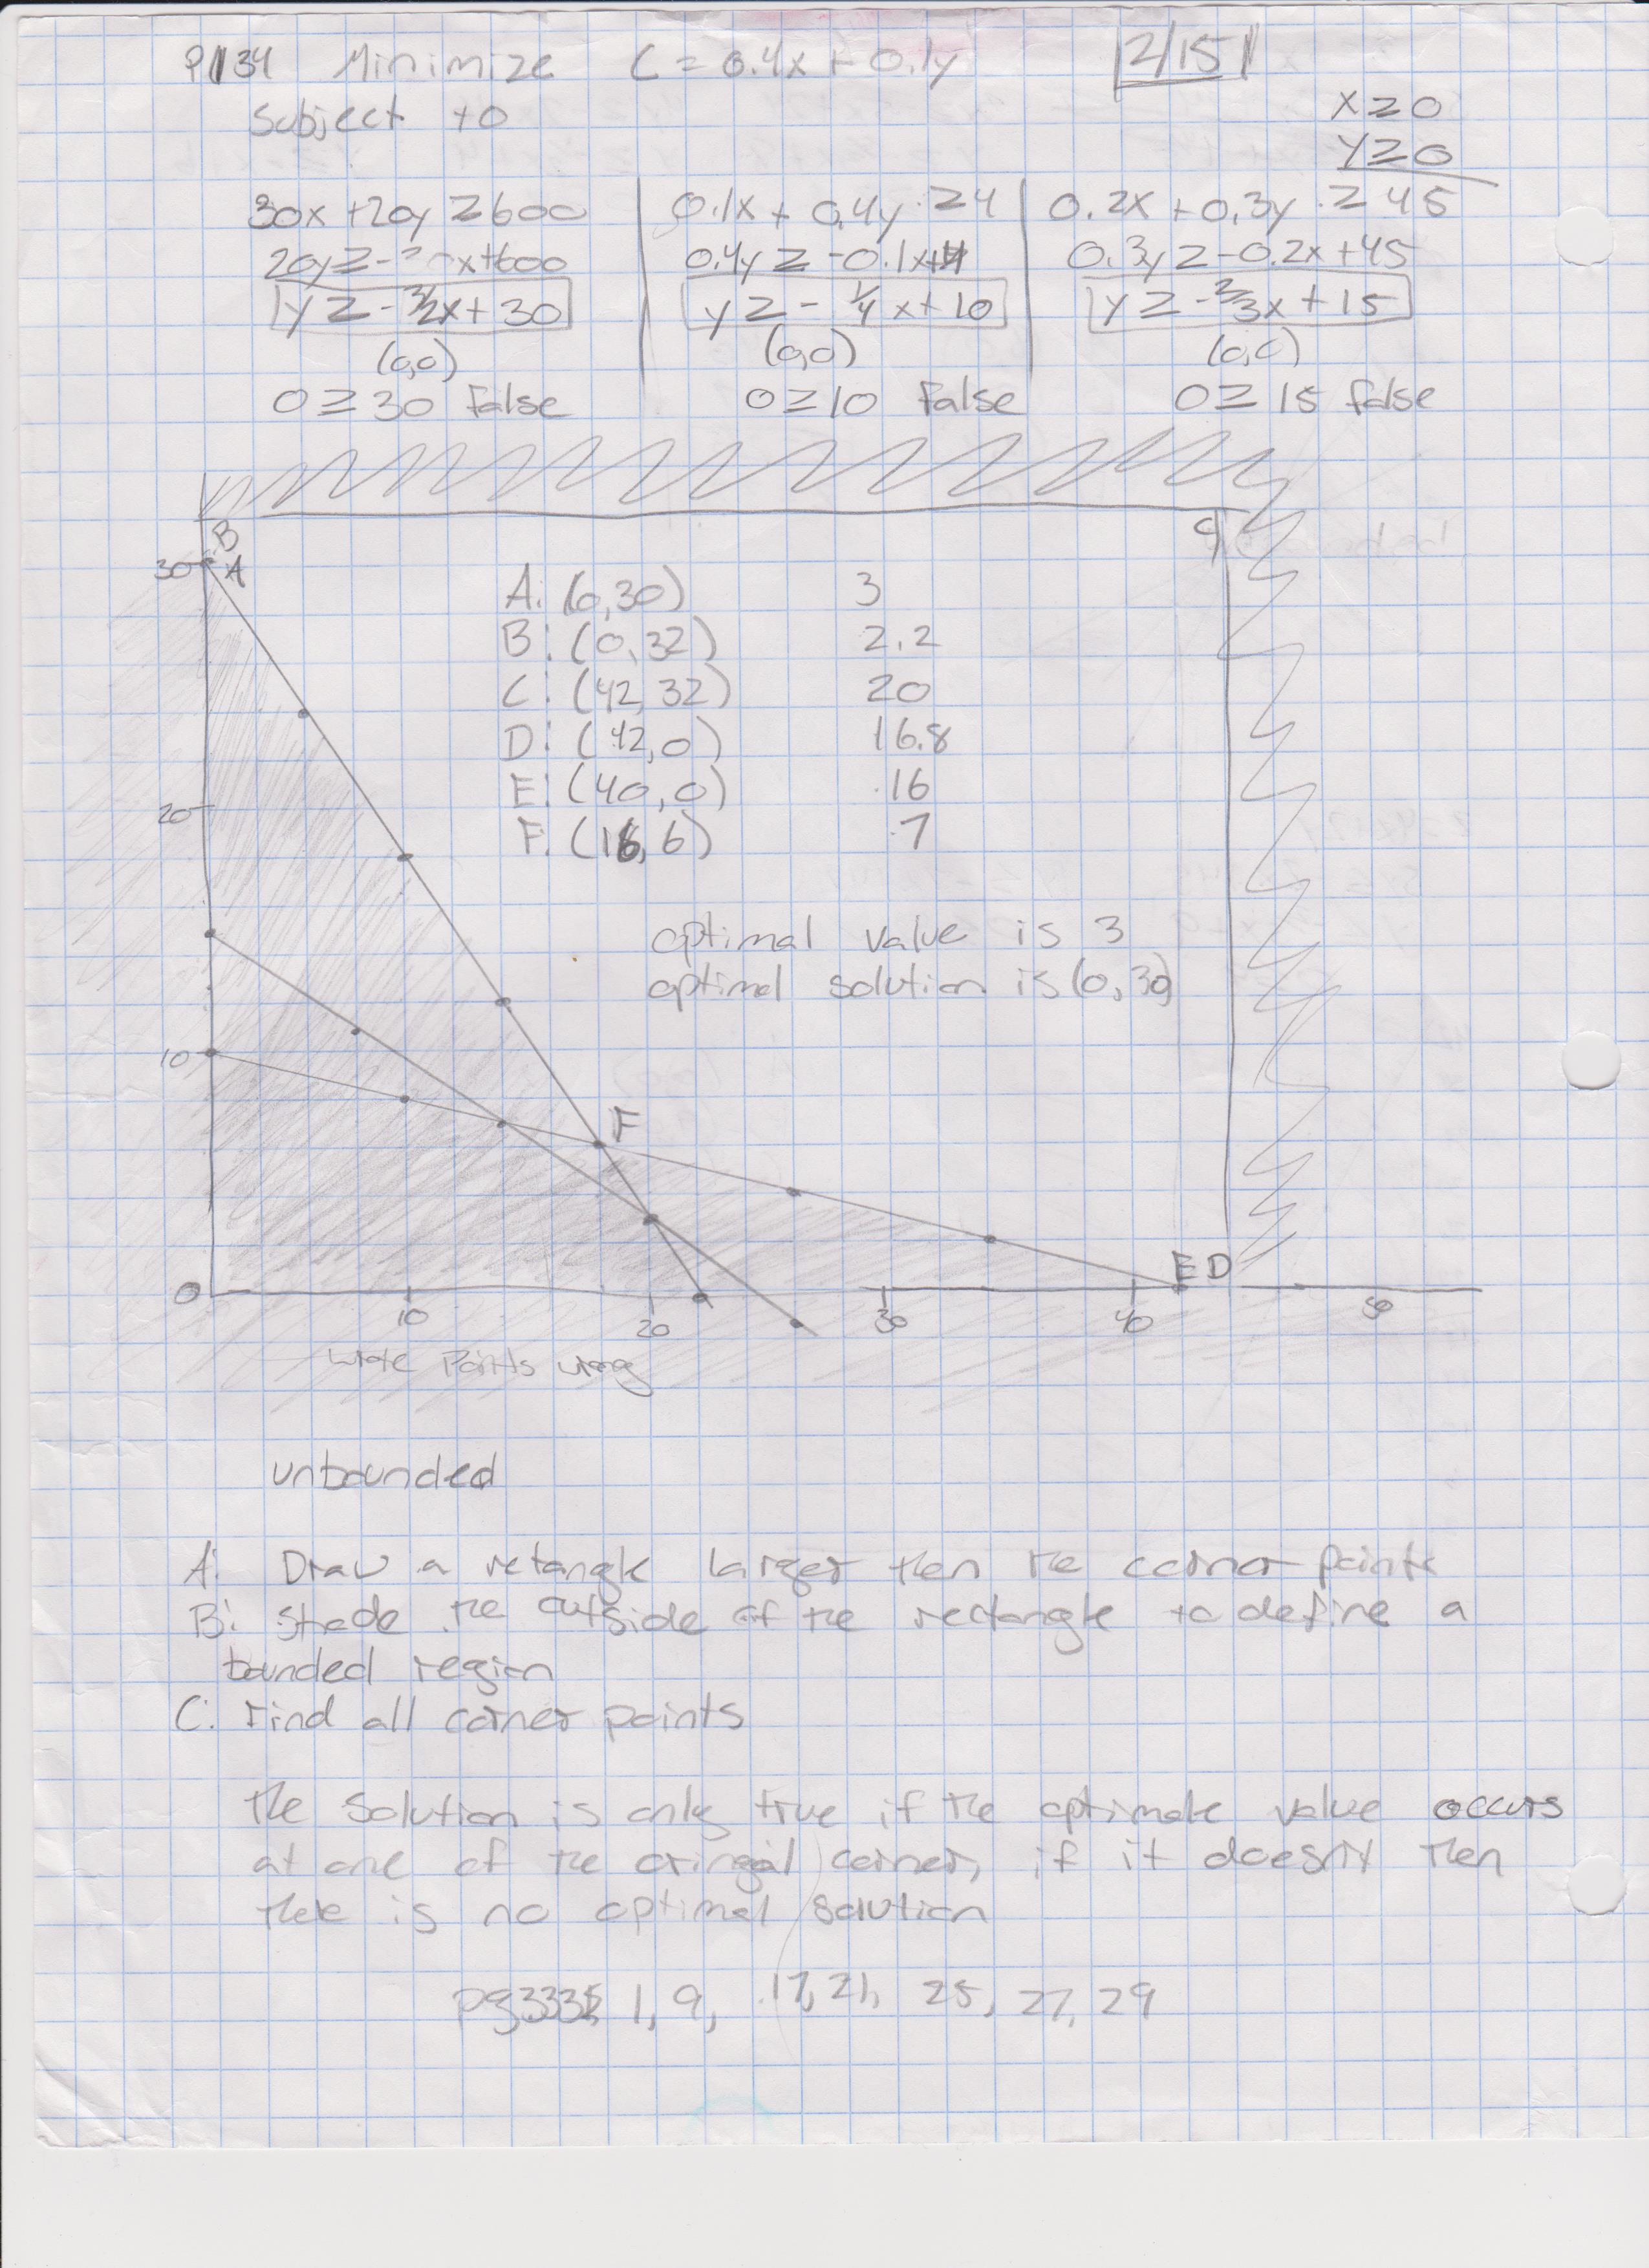 P134 Minimize C = 0.4x + 0.1y 2/15
Subject to x ≥ 0
y ≥ 0
30x + 20y ≥ 600 0.1x + 0.4y ≥ 4 0.2x + 0.3y ≥ 45
20y ≥ - x+600 0.4y ≥ -0.1x+4 0.3y ≥ -0.2x + 45
y ≥ -3/2x + 30 y ≥ - 1/4 x + 10 y ≥ -2/3x + 15
(0,0) (0,0) (0,0)
0 ≥ 30 false 0 ≥ 10 false 0 ≥ 15 false
B C
30 A
A: (0,30) 3
B: (0,32) 2.2
C: (42,32) 20
D: (42,0) 16.8
E: (40,0) 16
F: (16,6) 7
20
optimal value is 3
optimal solution is (0,30)
10
F
E D
0 10 20 30 40 50
wrote Points wrong
unbounded
A: Draw a retangle larger then the corner points
B: Shade the outside of the rectangle to define a
bounded region
C: Find all corner points
the solution is only true if the optimale value occurs
at one of the oringal corner, if it doesn't then
there is no optimal solution
1, 9, 17, 21, 25, 27, 29